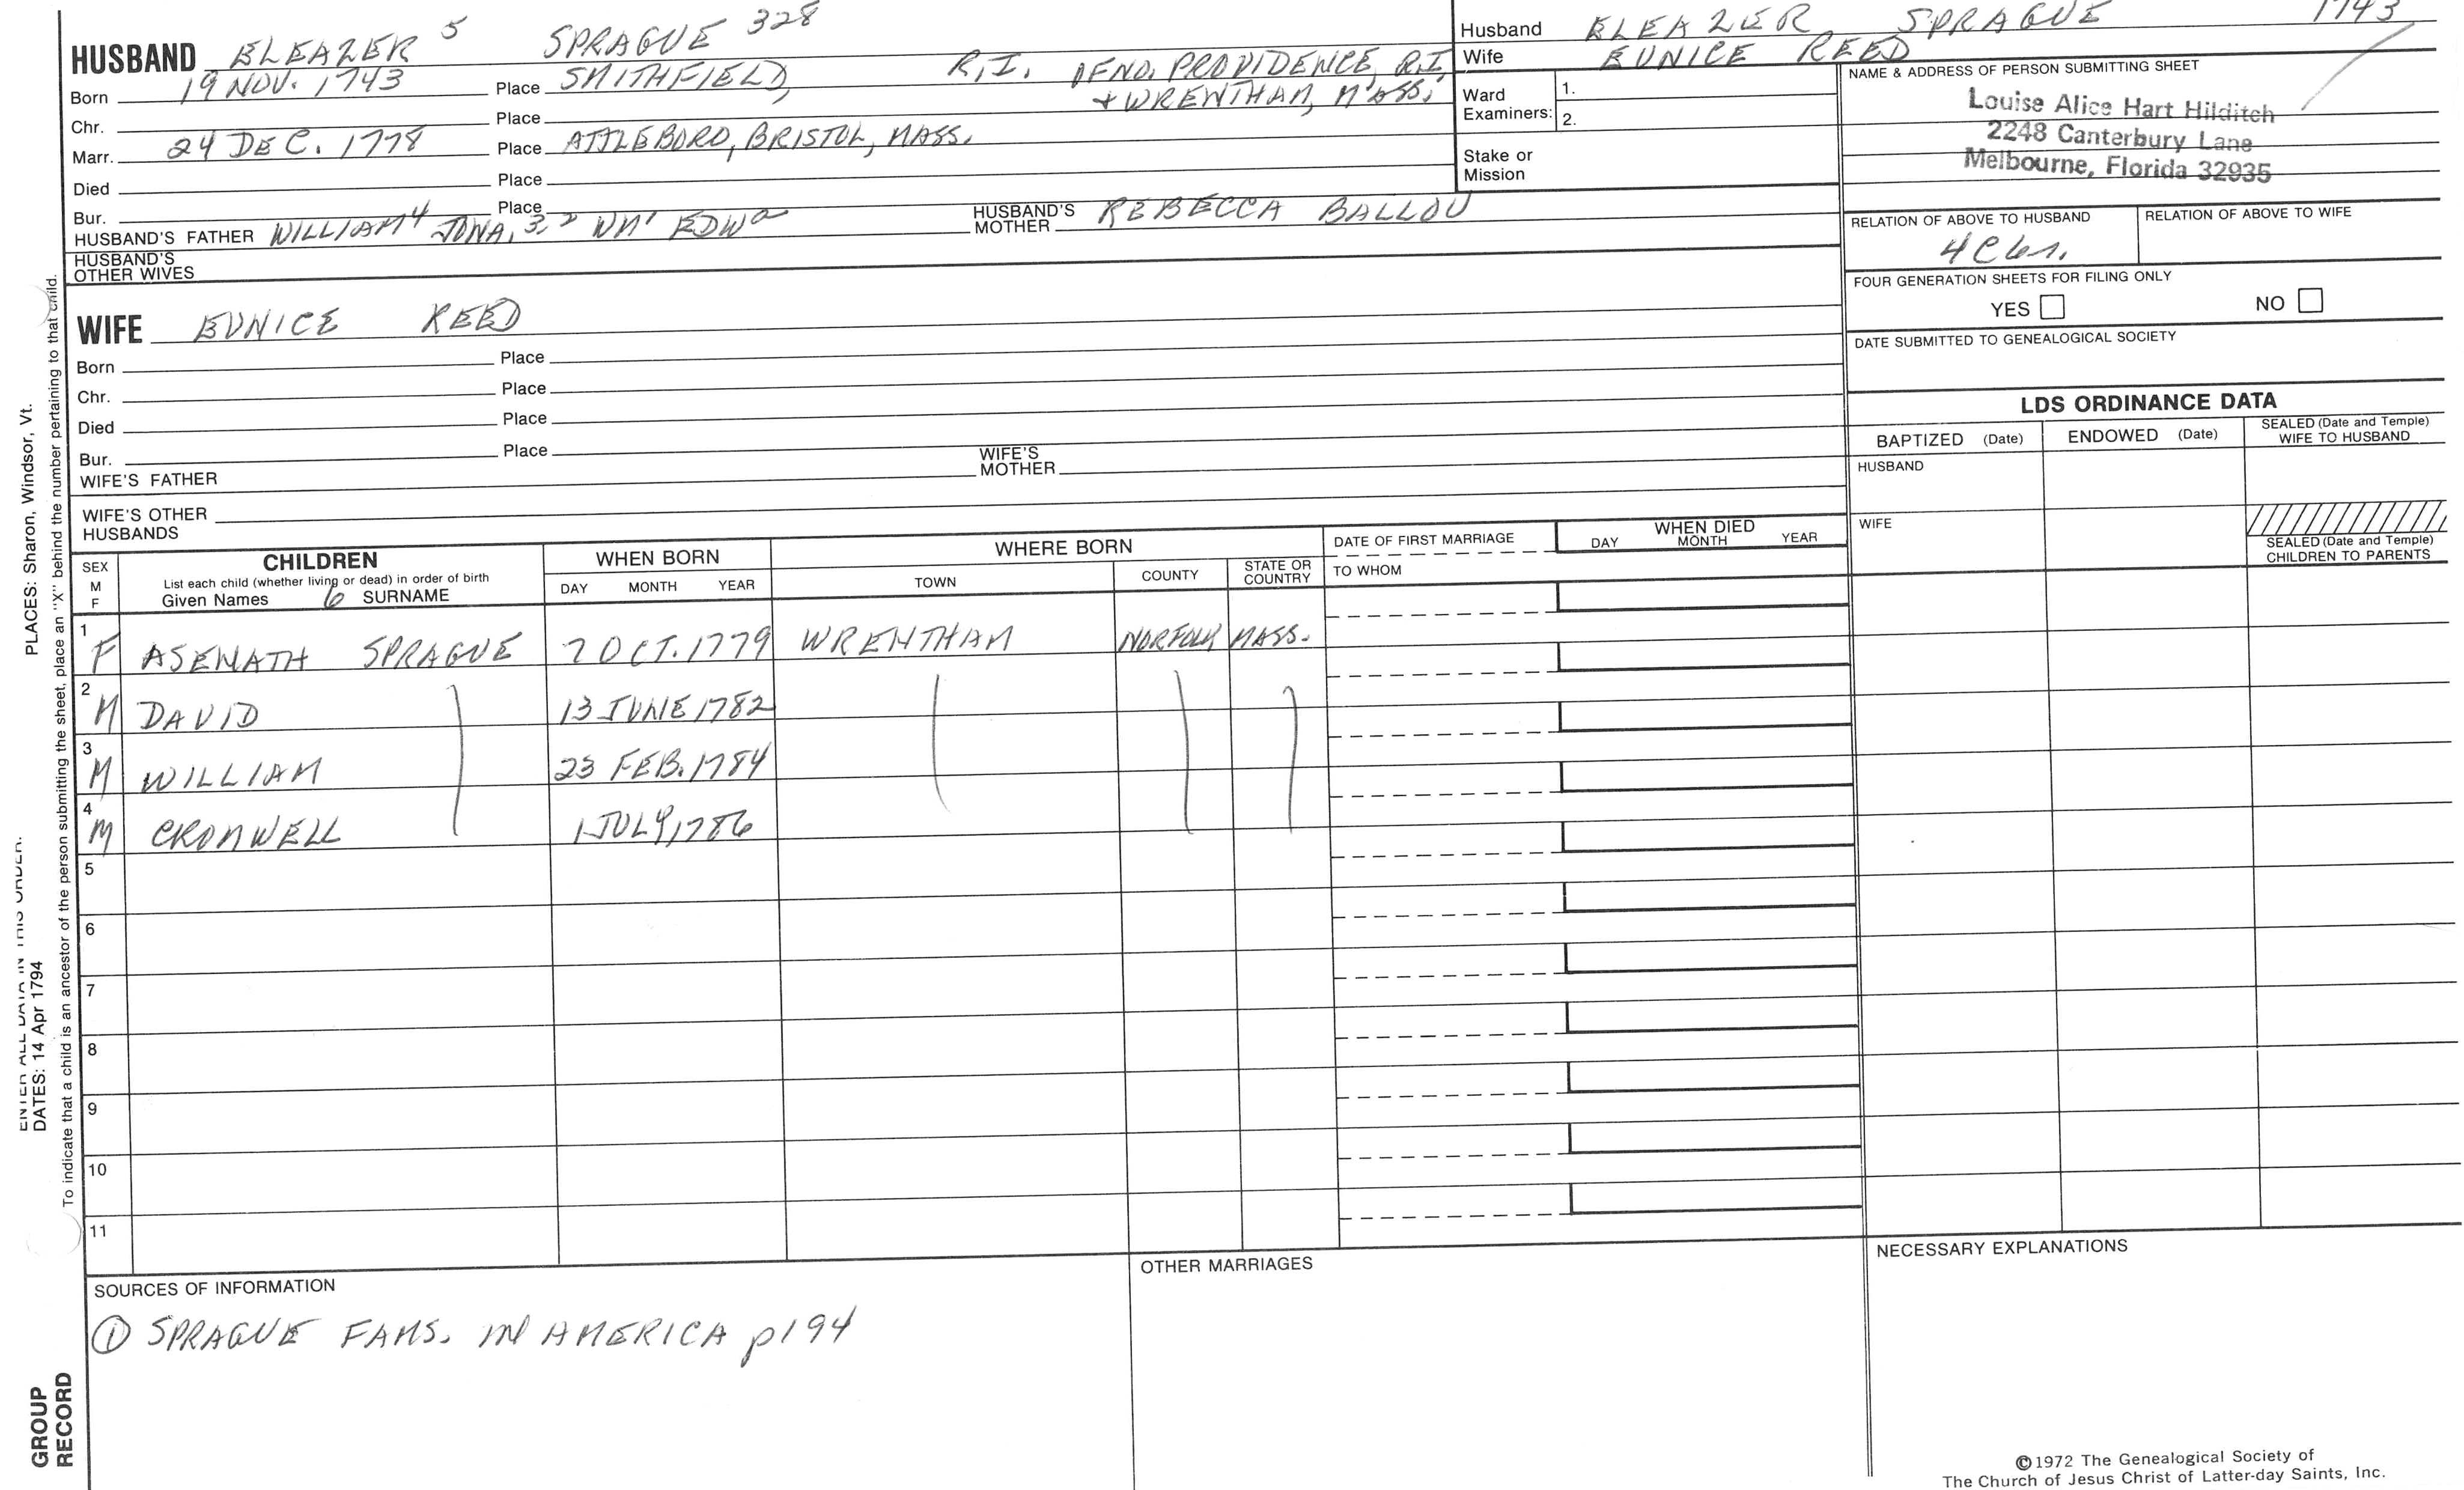 HUSBAND ELEAZER 5 SPRAGUE 328
Born 19 NOV. 1743 Place SMITHFIELD, R.I. OF NO. PROVIDENCE, R.I.
+ WRENTHAM, MASS.
Chr. Place
Marr. 24 DEC. 1778 Place ATTLEBORO, BRISTOL, MASS.
Died Place
Bur. Place
HUSBAND'S FATHER WILLIAM 4 JONA. 3 2 WM 1 EDW a HUSBAND'S MOTHER REBECCA BALLOU
HUSBAND'S OTHER WIVES
WIFE EUNICE REED
Born Place
Chr. Place
Died Place
Bur. Place
WIFE'S FATHER WIFE'S MOTHER
WIFE'S OTHER HUSBANDS
Husband ELEAZER SPRAGUE 1743
Wife EUNICE REED
Ward Examiners: 1.
2.
Stake or Mission
NAME & ADDRESS OF PERSON SUBMITTING SHEET
Louise Alice Hart Hilditch
2248 Canterbury Lane
Melbourne, Florida 32935
RELATION OF ABOVE TO HUSBAND RELATION OF ABOVE TO WIFE
FOUR GENERATION SHEETS FOR FILING ONLY
YES NO
DATE SUBMITTED TO GENEALOGICAL SOCIETY
LDS ORDINANCE DATA
BAPTIZED (Date) ENDOWED (Date) SEALED (Date and Temple) WIFE TO HUSBAND
HUSBAND
WIFE
SEALED (Date and Temple)
CHILDREN TO PARENTS
SEX M F CHILDREN WHEN BORN WHERE BORN DATE OF FIRST MARRIAGE WHEN DIED
List each child (whether living or dead) in order of birth
Given Names 6 SURNAME DAY MONTH YEAR TOWN COUNTY STATE OR COUNTRY TO WHOM DAY MONTH YEAR
1 F ASENATH SPRAGUE 7 OCT. 1779 WRENTHAM NORFOLK MASS.
2 M DAVID 13 JUNE 1782
3 M WILLIAM 23 FEB. 1784
4 M CROMWELL 1 JULY, 1786
5
6
7
8
9
10
11
SOURCES OF INFORMATION
① SPRAGUE FAMS. IN AMERICA p194
OTHER MARRIAGES
NECESSARY EXPLANATIONS
©1972 The Genealogical Society of
The Church of Jesus Christ of Latter-day Saints, Inc.
ENTER ALL DATA IN THIS ORDER:
DATES: 14 Apr 1794
PLACES: Sharon, Windsor, Vt.
To indicate that a child is an ancestor of the person submitting the sheet, place an "X" behind the number pertaining to that child.
GROUP
RECORD